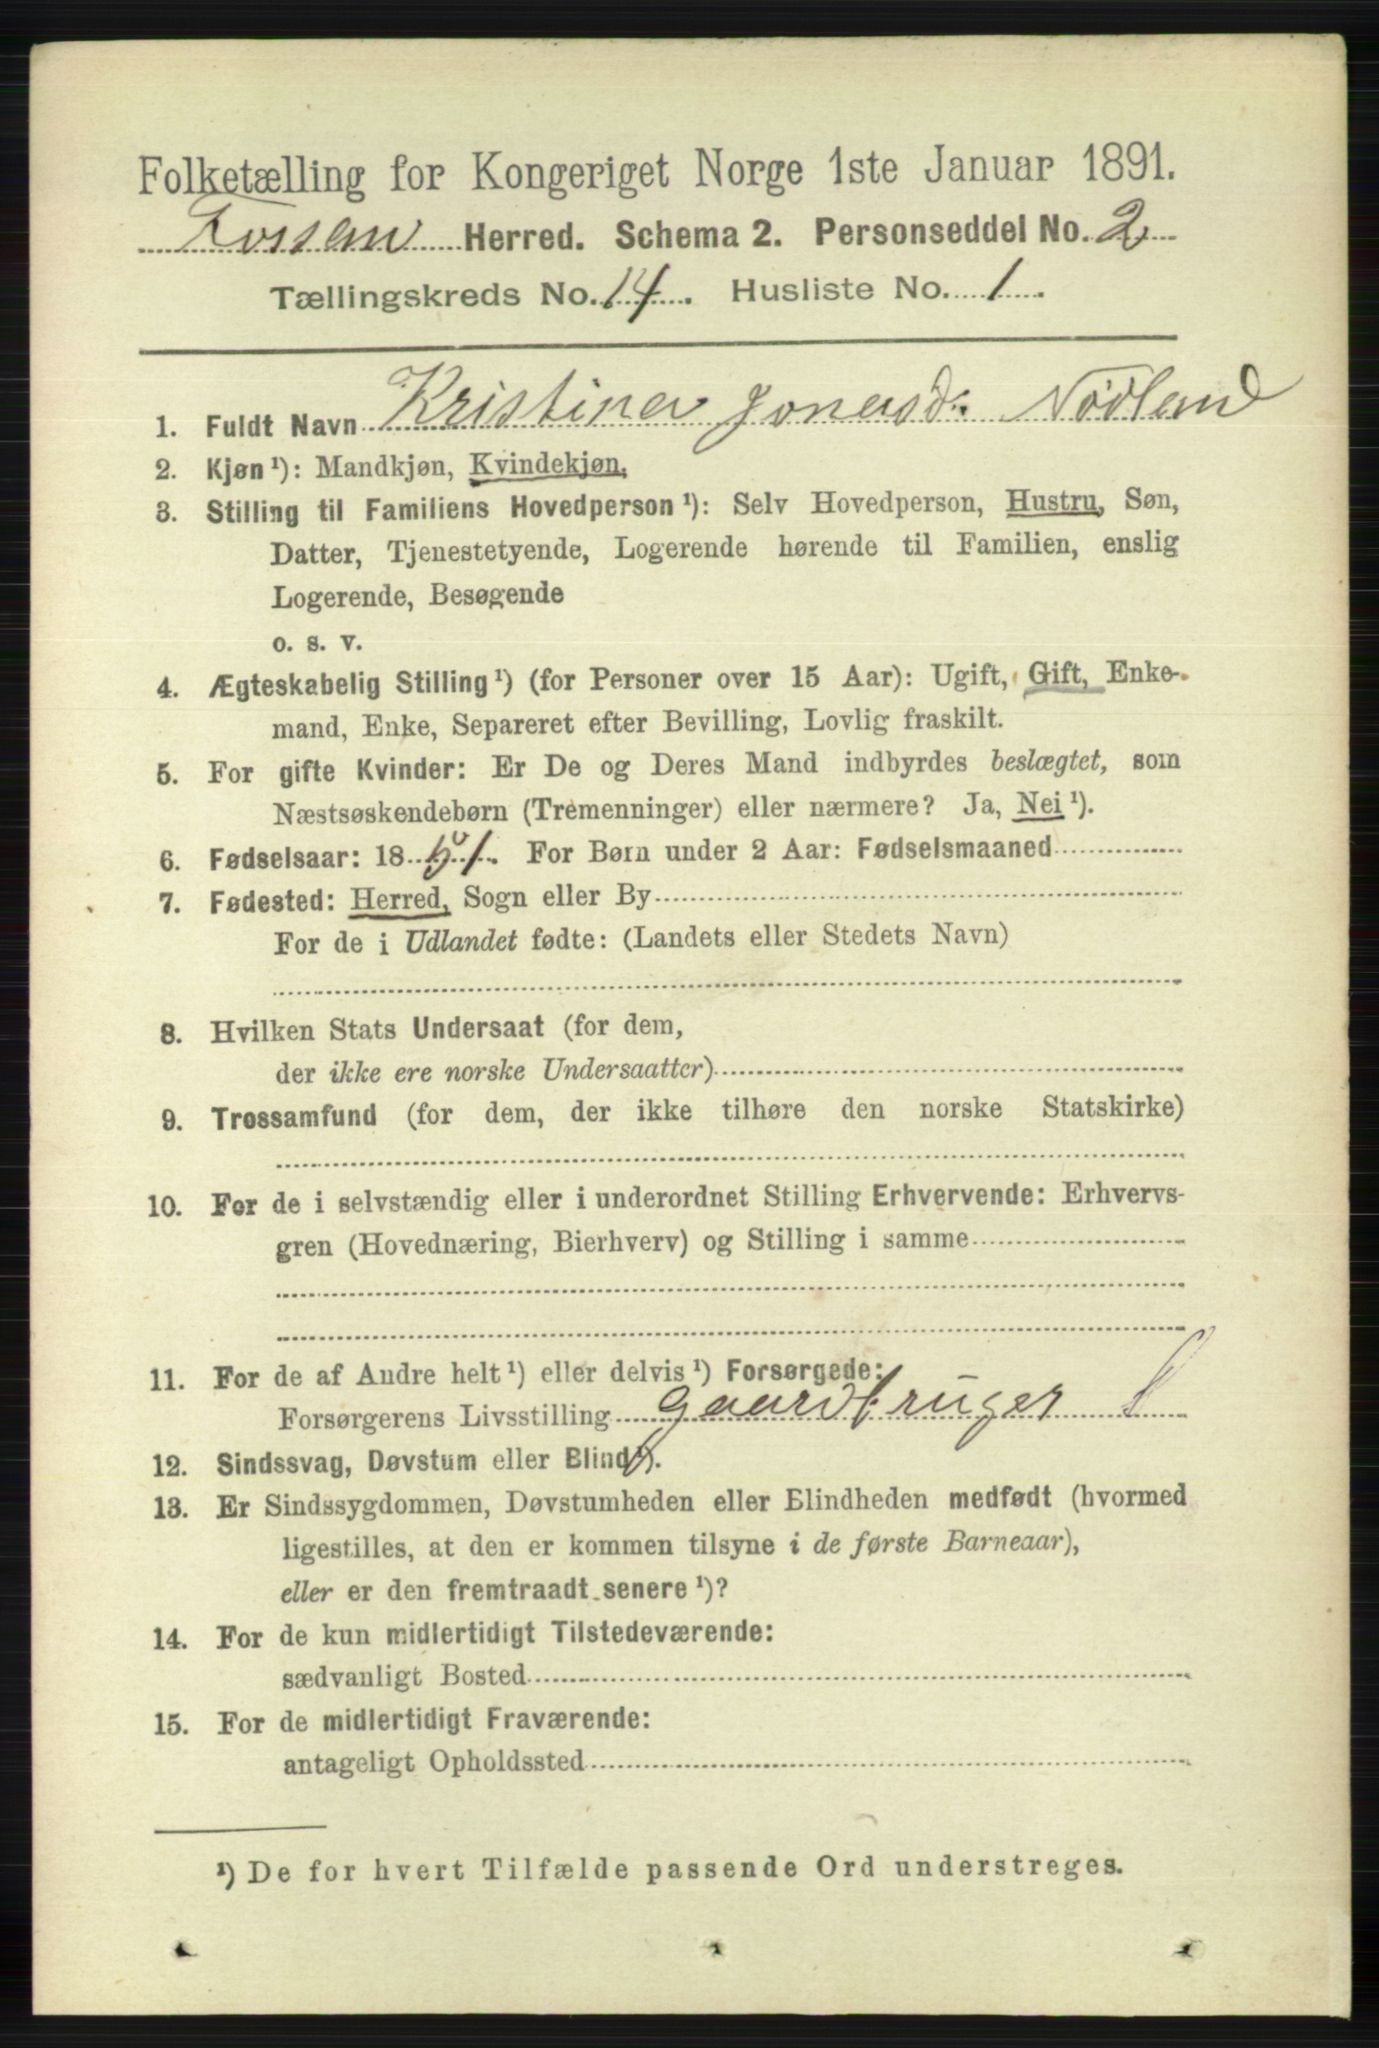 Folketælling for Kongeriget Norge 1ste Januar 1891.
Fossan Herred. Schema 2. Personseddel No. 2
Tællingskreds No. 14. Husliste No. 1
1. Fuldt Navn Kristine Jonasd: Nödland
2. Kjøn ¹): Mandkjøn, Kvindekjøn.
3. Stilling til Familiens Hovedperson ¹): Selv Hovedperson, Hustru, Søn,
Datter, Tjenestetyende, Logerende hørende til Familien, enslig
Logerende, Besøgende
o. s. v.
4. Ægteskabelig Stilling ¹) (for Personer over 15 Aar): Ugift, Gift, Enke-
mand, Enke, Separeret efter Bevilling, Lovlig fraskilt.
5. For gifte Kvinder: Er De og Deres Mand indbyrdes beslægtet, som
Næstsøskendebørn (Tremenninger) eller nærmere? Ja, Nei ¹).
6. Fødselsaar: 18 For Børn under 2 Aar: Fødselsmaaned
7. Fødested: Herred, Sogn eller By
For de i Udlandet fødte: (Landets eller Stedets Navn)
8. Hvilken Stats Undersaat (for dem,
der ikke ere norske Undersaatter)
9. Trossamfund (for dem, der ikke tilhøre den norske Statskirke)
10. For de i selvstændig eller i underordnet Stilling Erhvervende: Erhvervs-
gren (Hovednæring, Bierhverv) og Stilling i samme
11. For de af Andre helt ¹) eller delvis ¹) Forsørgede:
Forsørgerens Livsstilling Gaardbruger
12. Sindssvag, Døvstum eller Blind ¹).
13. Er Sindssygdommen, Døvstumheden eller Blindheden medfødt (hvormed
ligestilles, at den er kommen tilsyne i de første Barneaar),
eller er den fremtraadt senere ¹)?
14. For de kun midlertidigt Tilstedeværende:
sædvanligt Bosted
15. For de midlertidigt Fraværende:
antageligt Opholdssted
¹) De for hvert Tilfælde passende Ord understreges.